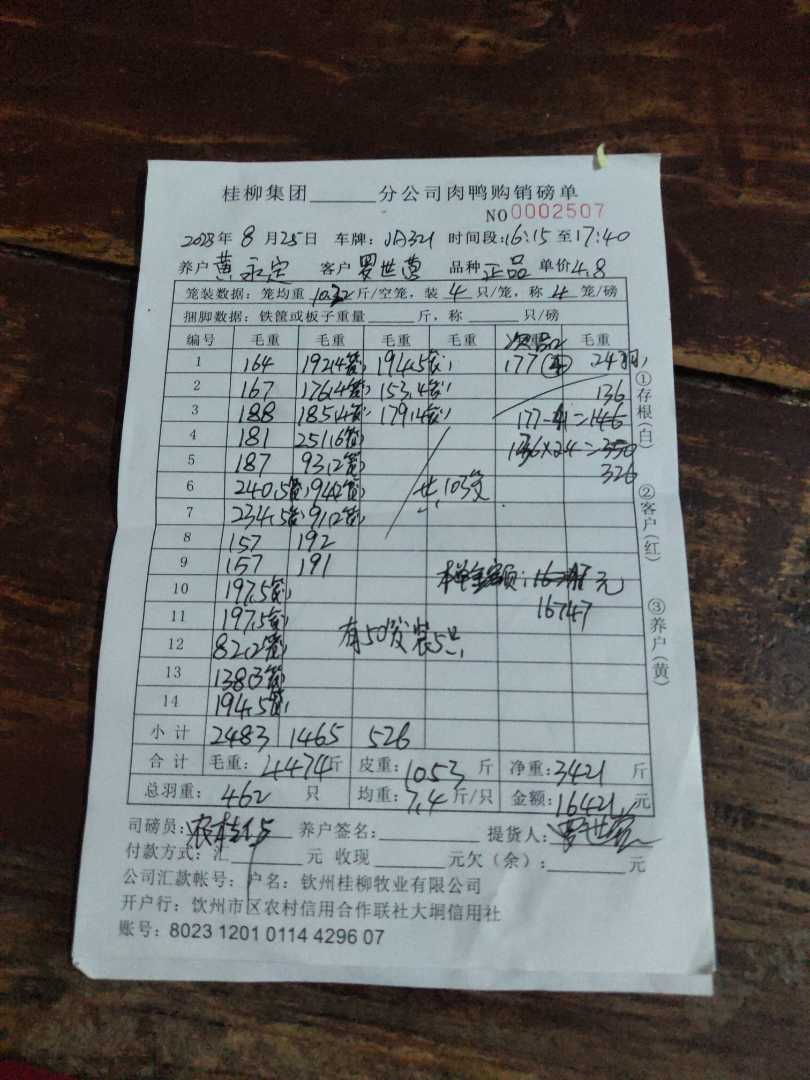 桂柳集团______分公司肉鸭购销磅单
NO 0002507
2023年 8 月25日 车牌: JA321 时间段:16:15 至17:40
养户 黄永定 客户 罗世 品种 正品 单价4.8
笼装数据: 笼均重 10.22 斤/空笼, 装 4 只/笼, 称 4 笼/磅
捆脚数据: 铁筐或板子重量______斤, 称______只/磅
编号 毛重 毛重 毛重 毛重 毛重 毛重
次品
1 164 192,4 194,5 177 24羽
2 167 176,4 153,4 136
3 188 185,4 179,4 177-41=146
4 181 251,6 136×24=350
5 187 93,2 326
6 240,5 94,2 共103
7 234,5 91,2
8 157 192
9 157 191 本单金额: 元
10 197,5 16747
11 197,5 有50 装5只
12 82,2
13 138,3
14 194,5
小计 2483 1465 526
合计 毛重: 4474斤 皮重: 1053 斤 净重:3421 斤
总羽重: 462 只 均重:7.4 斤/只 金额:16421 元
司磅员: 农桂 养户签名:______ 提货人: 罗世
付款方式: 汇______元 收现______元欠(余):______元
公司汇款帐号: 户名: 钦州桂柳牧业有限公司
开户行: 钦州市区农村信用合作联社大垌信用社
账号: 8023 1201 0114 4296 07
①存根(白)
②客户(红)
③养户(黄)